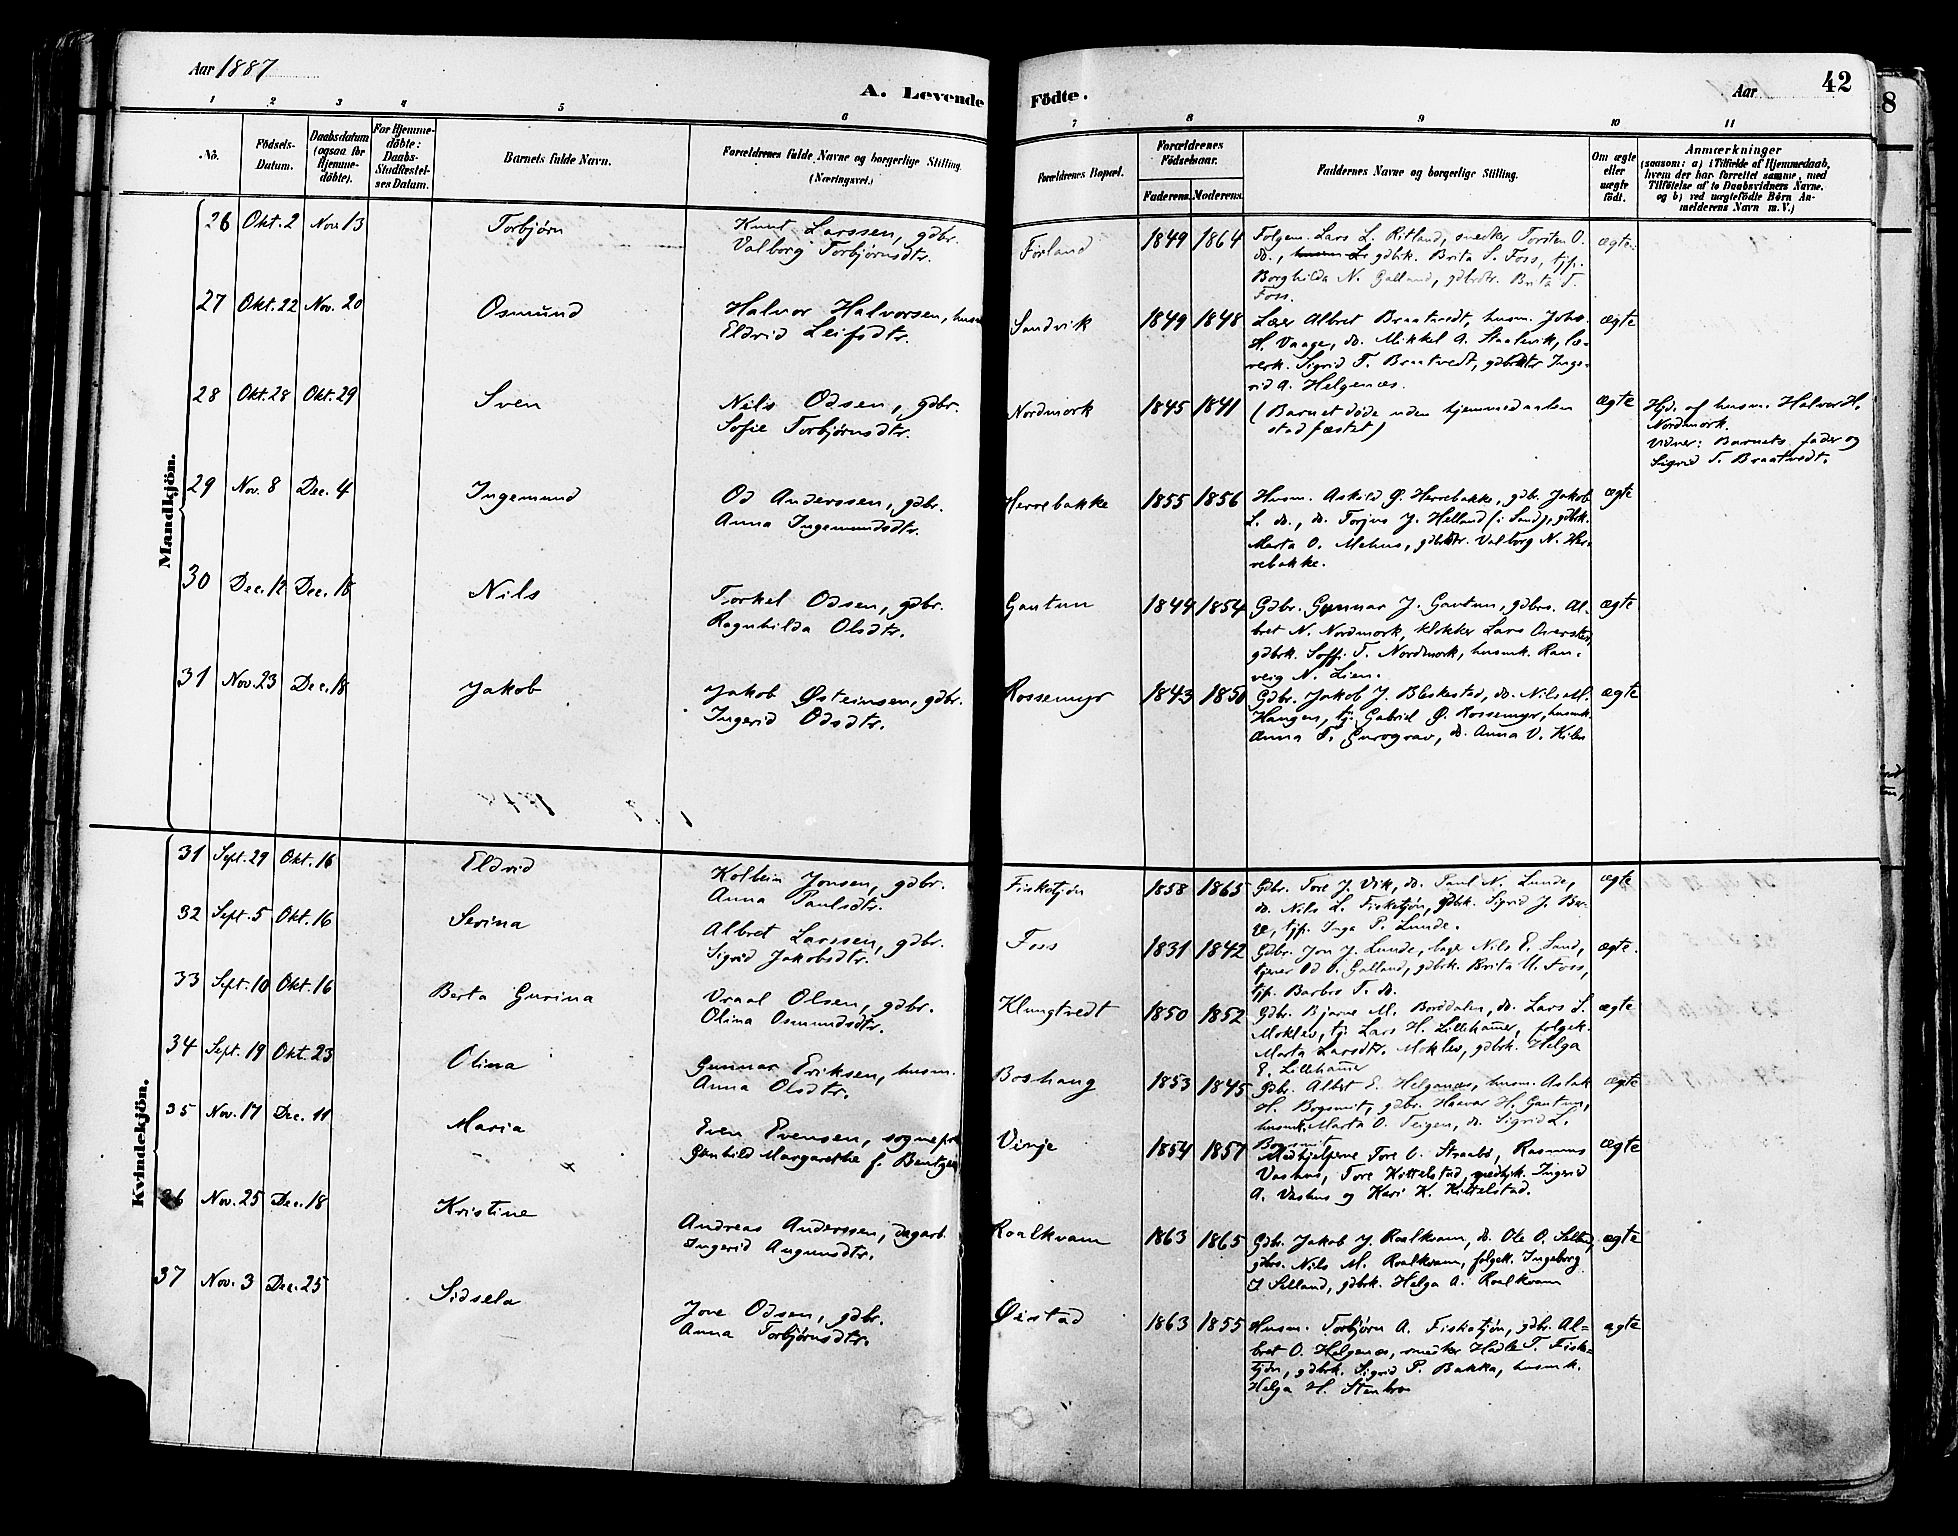 Aar 1887
A. Levende Fødte.
Aar
42
8
1 2 3 4 5 6 7 8 9 10 11
No.
Fødsels-
Datum.
Daabsdatum
(ogsaa for
Hjemme-
døbte).
For Hjemme-
døbte:
Daabs-
Stadfæstel-
ses Datum.
Barnets fulde Navn.
Forældrenes fulde Navne og borgerlige Stilling
(Næringsvei.)
Forældrenes Bopæl.
Forældrenes
Fødselsaar.
Faderens. Moderens.
Faddernes Navne og borgerlige Stilling.
Om ægte
eller
uægte
født.
Anmærkninger
(saasom: a) i Tilfælde af Hjemmedaab,
hvem der har forrettet samme, med
Tilføielse af to Daabsvidners Navne.
og b) ved uægtefødte Børn An-
melderens Navn m. V.)
Mandkjøn.
26 Okt. 2 Nov. 13 Torbjørn
Knut Larssen, gdbr.
Valborg Torbjørnsdtr.
Førland 1849 1864
Folgem. Lars L. Ritland, snedker Torsten O.
do., gdbrk. Brita S. Foss, tjp.
Borghilda N. Galland, gdbrdtr. Brita T.
Foss.
ægte
27 Okt. 22 Nov. 20 Osmund
Halvor Halvorsen, husm
Eldrid Leifsdtr.
Sandvik 1849 1848
Lær Albret Braatvedt, husm. Johs.
H. Vaage, do. Mikkel A. Staalevik, læ-
rerk. Sigrid T. Braatvedt, gdbrdtr Inge-
rid A. Helgenæs.
ægte
28 Okt. 28 Okt. 29 Sven
Nils Odsen, gdbr.
Sofie Torbjørnsdtr.
Nordmork 1845 1841
(Barnet døde uden hjemmedaaben
stadfæstet)
ægte
Hjd. af husm. Halvor H.
Nordmork.
Vidner: Barnets fader og
Sigrid T. Braatvedt.
29 Nov. 8 Dec. 4 Ingemund
Od Anderssen, gdbr.
Anna Ingemundsdtr.
Herrebakke 1855 1856
Husm. Askild Ø. Herrebakke, gdbr. Jakob
L. do., do. Torjus J. Helland (i Sand), gdbrk.
Marta O. Mehus, gdbrdtr. Valborg N. Her-
rebakke.
ægte
30 Dec. 12 Dec. 18 Nils
Torkel Odsen, gdbr.
Ragnhilda Olsdtr.
Gautun 1849 1854
Gdbr. Gunnar J. Gautun, gdbrs. Al-
bret N. Nordmork, klokker Lars Overskei,
gdbrk. Soffi T. Nordmork, husmk. Ran-
veig N. Lien.
ægte
31 Nov. 23 Dec. 18 Jakob
Jakob Østeinsen, gdbr.
Ingerid Odsdtr.
Rossemyr 1843 1850
Gdbr. Jakob J. Bleskestad, do. Nils M.
Haugen, tj. Gabriel Ø. Rossemyr, husmk.
Anna T. Gurograv, do. Anna V. Kilen
ægte
Kvindekjøn.
31 Sept. 29 Okt. 16 Eldrid
Kolbein Jonsen, gdbr.
Anna Paulsdtr.
Fisketjøn 1858 1865
Gdbr. Tore J. Vik, do. Paul N. Lunde,
do. Nils L. Fisketjøn, gdbrk. Sigrid J. Ber-
ge, tjp. Inga P. Lunde.
ægte
32 Sept. 5 Okt. 16 Serina
Albret Larssen, gdbr.
Sigrid Jakobsdtr.
Foss 1831 1842
Gdbr. Jon J. Lunde, bager Nils E. Sand,
tjener Od O. Galland, gdbrk. Brita U. Foss,
tjp. Barbro T. do.
ægte.
33 Sept. 10 Okt. 16 Berta Gurina
Vraal Olsen, gdbr.
Olina Osmundsdtr.
Klungtvedt 1850 1852
Gdbr. Bjarne M. Borddalen, do. Lars S.
Moklev, tj. Lars H. Lillehamer, folgek.
Marta Larsdtr. Moklev, gdbrk. Helga
E. Lillehamer
ægte
34 Sept. 19 Okt. 23 Olina
Gunnar Eriksen, husm.
Anna Olsdtr.
Boshaug 1853 1845
Gdbr. Albret E. Helganes, husm. Aslak
H. Bogsmit, gdbr. Haavar H. Gautun,
husmk. Marta O. Teigen, do. Sigrid L.
Bogsmit
ægte
35 Nov. 17 Dec. 11 Maria
Even Evensen, sognepr
Gunhild Margarethe f. Bentzen
Vinje 1854 1857
Medhjelperne Tore O. Straabø, Rasmus
Vashus, Tore Kittelstad, medhjk. Ingerid
A. Vashus og Kari K. Kittelstad.
ægte
36 Nov. 25 Dec. 18 Kristine
Andreas Anderssen, dagarb.
Ingerid Aamundsdtr.
Roalkvam 1863 1865
Gdbr. Jakob J. Roalkvam, do. Ole O. Selland,
gdbrs. Nils M. Roalkvam, folgek. Ingeborg
J Selland, gdbrk. Helga A. Roalkvam
ægte
37 Nov. 3 Dec. 25 Sidsela
Jone Odsen, gdbr.
Anna Torbjørnsdtr.
Øistad 1863 1855
Husm. Torbjørn A. Fisketjøn, gdbr. Al-
bret O. Helgenæs, smedker Hadle T. Fiske-
tjøn, gdbrk. Sigrid P. Bakka, husmk.
Helga H. Stenbro
ægte